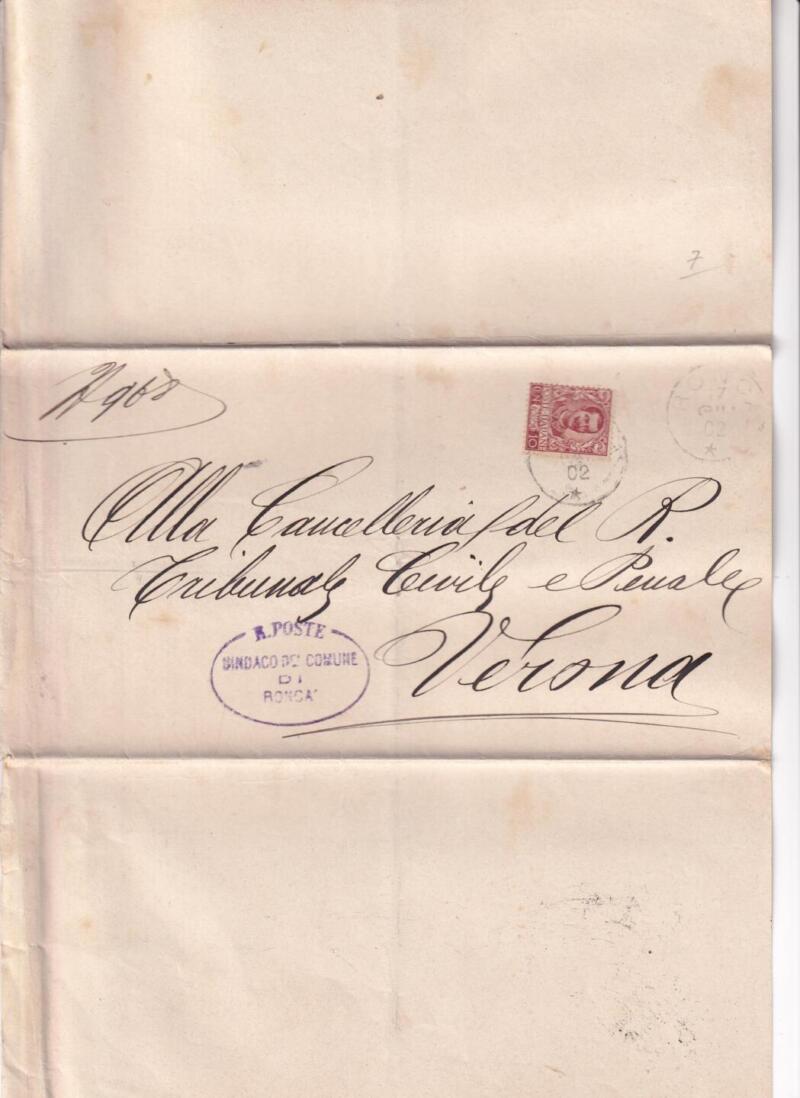 7
N 968
RONCÀ
7
GIU
02
02
Alla Cancelleria del R.
Tribunale Civile e Penale
Verona
R. POSTE
SINDACO DEL COMUNE
DI
RONCA'